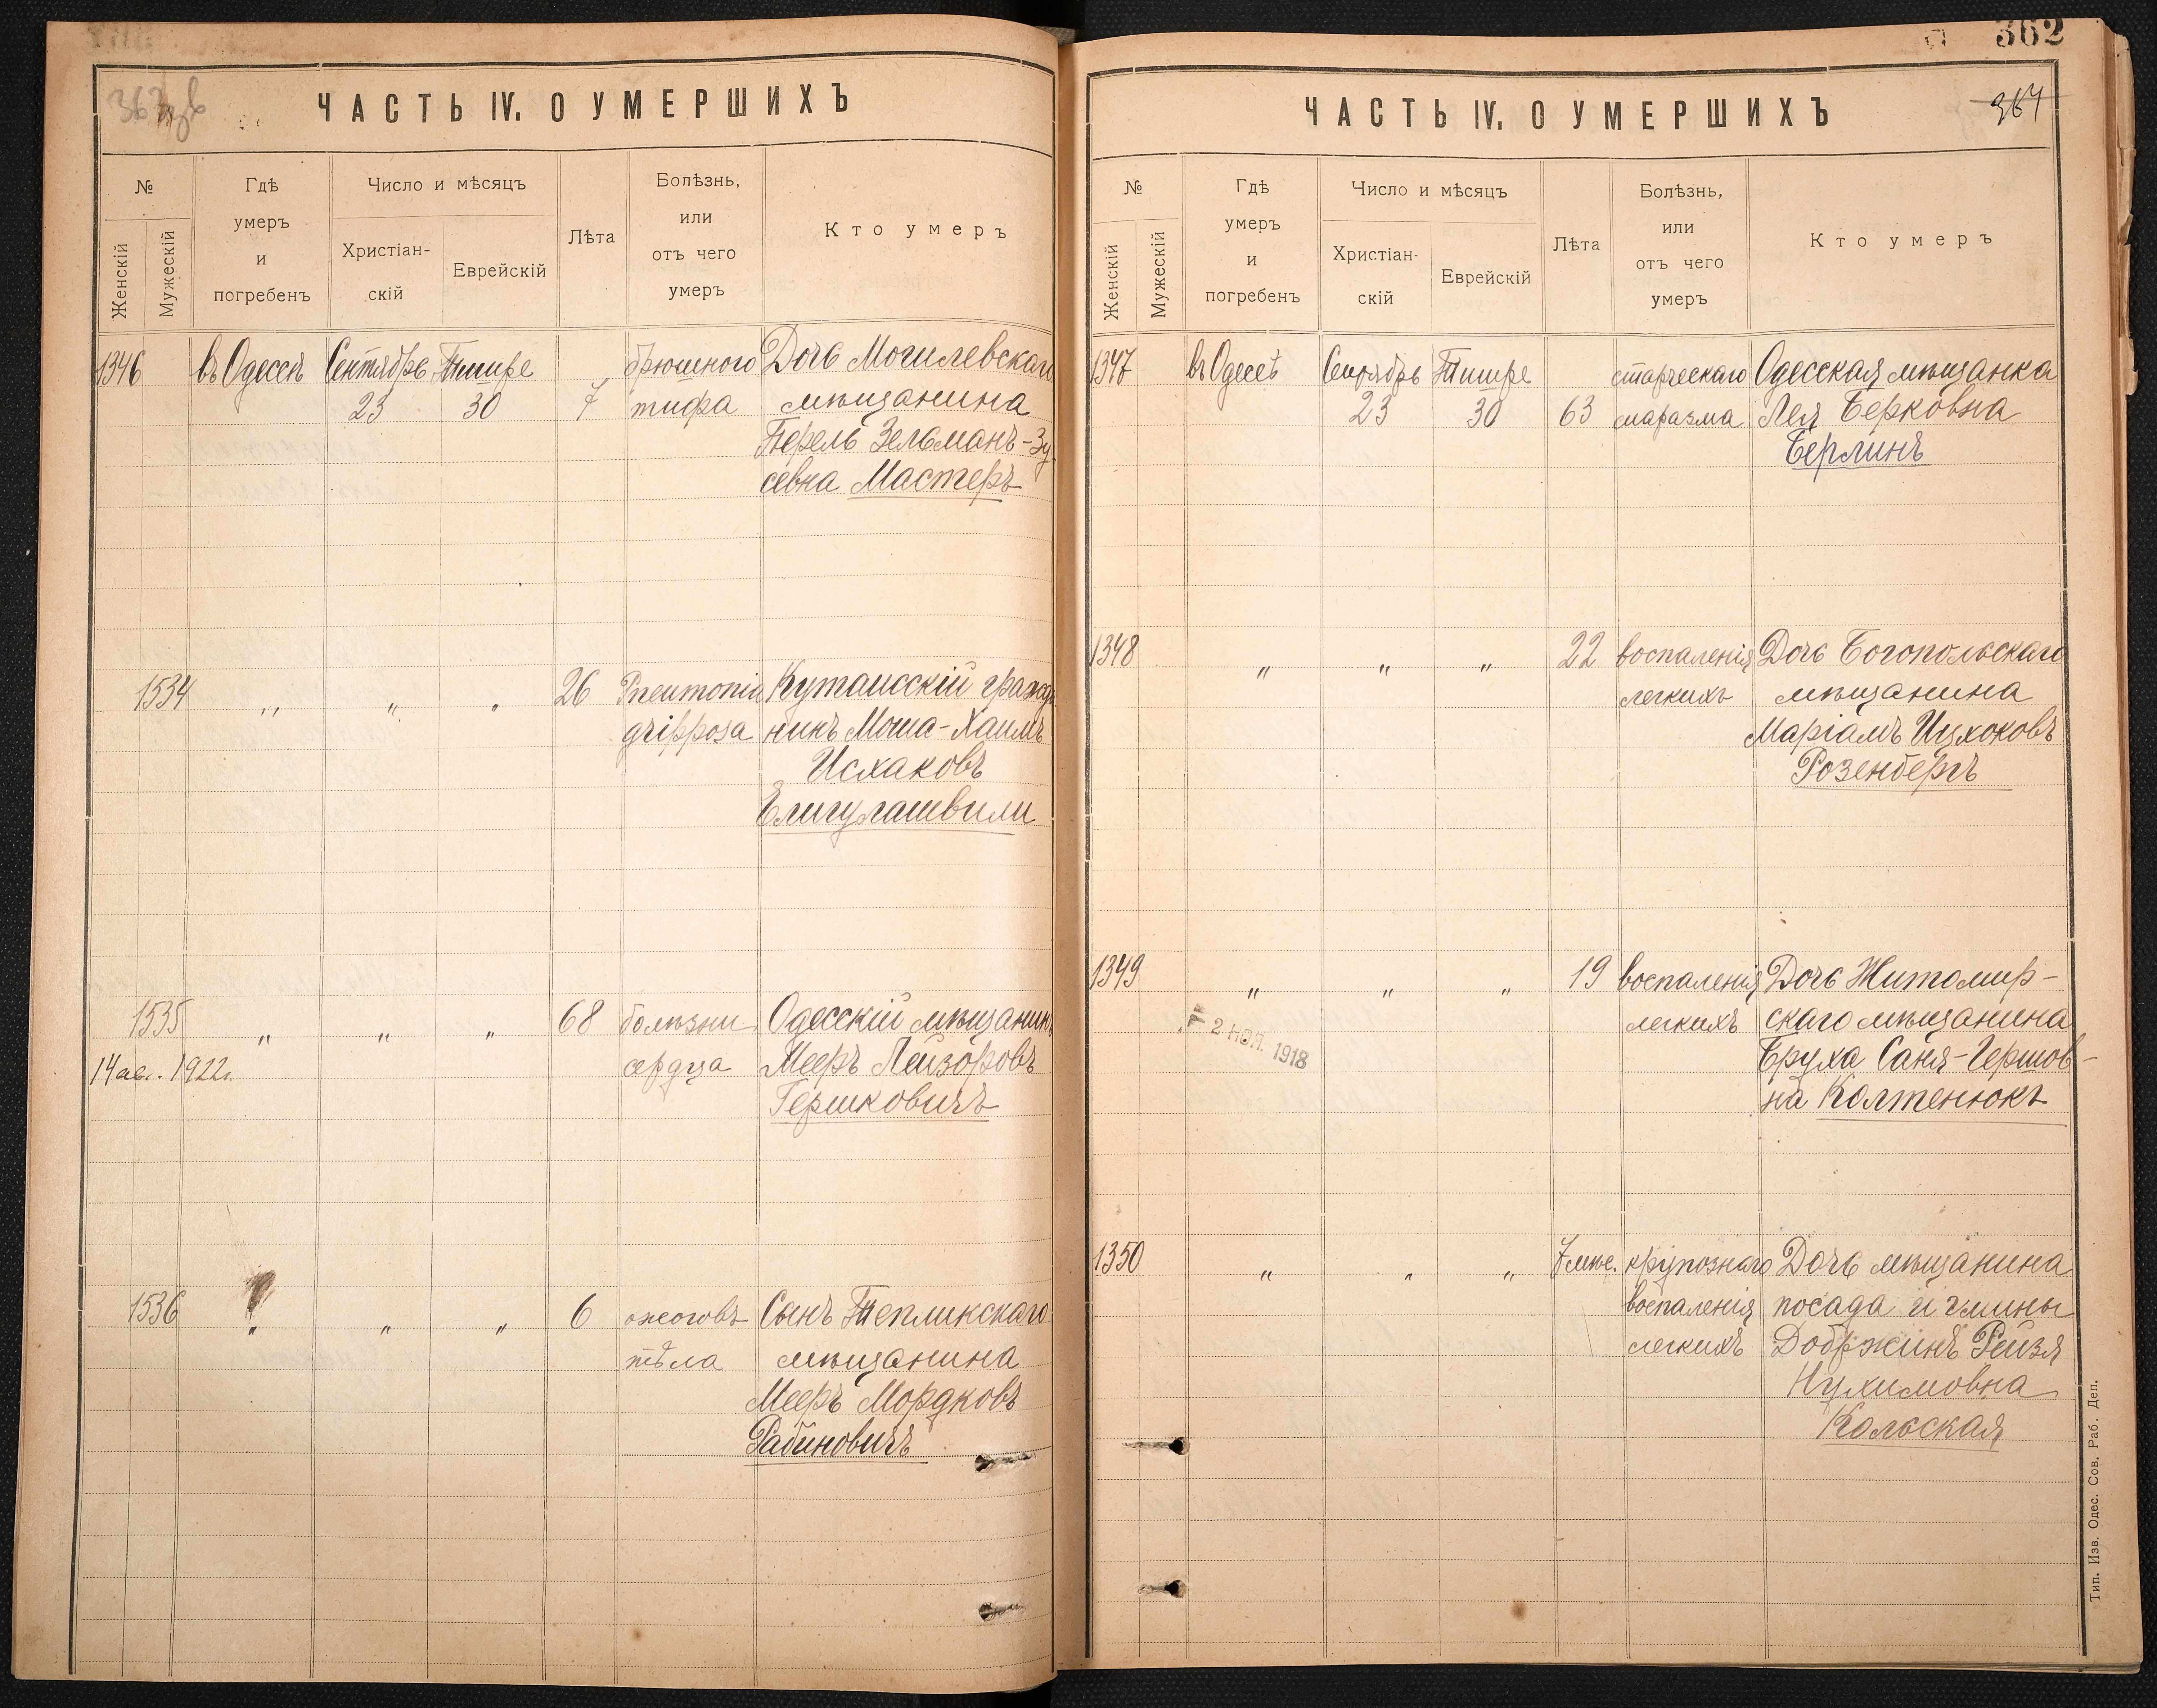 ЧАСТЬ IV. О УМЕРШИХЪ
№
Женскій
Мужескій
Гдѣ
умеръ
и
погребенъ
Число и мѣсяцъ
Христіан-
скій
Еврейскій
Лѣта
Болѣзнь,
или
отъ чего
умеръ
Кто умеръ
1346 въ Одессѣ Сентябрь Тишре брюшного Дочь Могилевскаго
23 30 7 тифа мѣщанина
Перель Зельманъ-Зу
севна Мастеръ
1534 " " " 26 Pneumonia Кутаисскій гражда
gripposa никъ Моша-Хаимъ
Исхаковъ
Елигулашвили
1535 " " " 68 болѣзни Одесскій мѣщанинъ
14 авг. 1922г. сердца Мееръ Лейзоровъ
Гершковичъ
1536 " " " 6 ожоговъ Сынъ Тепликскаго
тѣла мѣщанина
Мееръ Мордковъ
Рабиновичъ
362
364
ЧАСТЬ IV. О УМЕРШИХЪ
№
Женскій
Мужескій
Гдѣ
умеръ
и
погребенъ
Число и мѣсяцъ
Христіан-
скій
Еврейскій
Лѣта
Болѣзнь,
или
отъ чего
умеръ
Кто умеръ
1347 въ Одессѣ Сентябрь Тишре старческаго Одесская мѣщанка
23 30 63 маразма Лея Берковна
Берлинъ
1348 " " " 22 воспаленія Дочь Богопольскаго
легкихъ мѣщанина
Маріамъ Ицхоковъ
Розенбергъ
1349 " " " 19 воспаленія Дочь Житомир-
легкихъ скаго мѣщанина
2 НОЯ. 1918
Бруха Саня-Гершов-
на Колтенюкъ
1350 " " " 7 мѣс. крупознаго Дочь мѣщанина
воспаленія посада и гмины
легкихъ Добржинъ Рейзя
Нухимовна
Кольская
Тип. Изв. Одес. Сов. Раб. Деп.